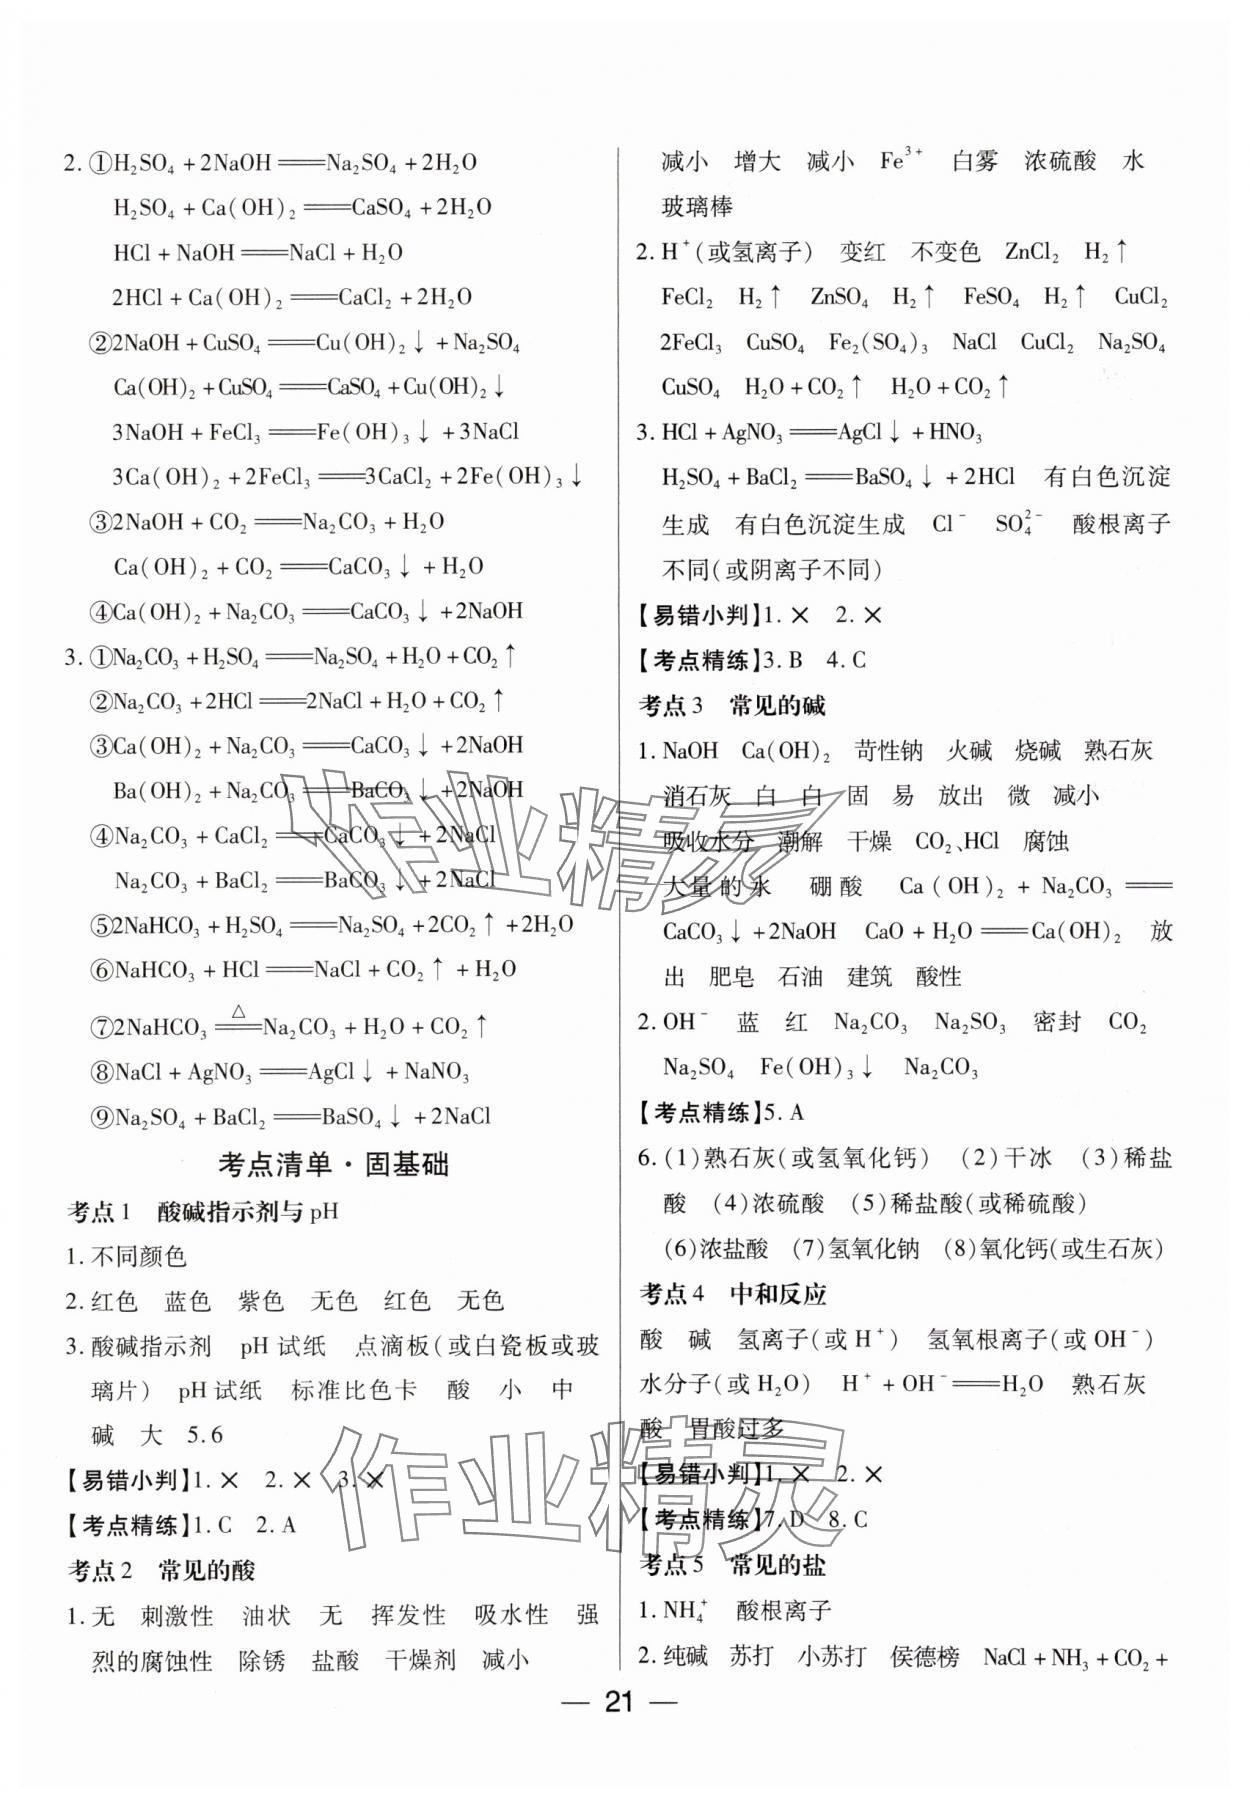 2. ①H₂SO₄ + 2NaOH══Na₂SO₄ + 2H₂O
H₂SO₄ + Ca(OH)₂══CaSO₄ + 2H₂O
HCl + NaOH══NaCl + H₂O
2HCl + Ca(OH)₂══CaCl₂ + 2H₂O
②2NaOH + CuSO₄══Cu(OH)₂↓ + Na₂SO₄
Ca(OH)₂ + CuSO₄══CaSO₄ + Cu(OH)₂↓
3NaOH + FeCl₃══Fe(OH)₃↓ + 3NaCl
3Ca(OH)₂ + 2FeCl₃══3CaCl₂ + 2Fe(OH)₃↓
③2NaOH + CO₂══Na₂CO₃ + H₂O
Ca(OH)₂ + CO₂══CaCO₃↓ + H₂O
④Ca(OH)₂ + Na₂CO₃══CaCO₃↓ + 2NaOH
3. ①Na₂CO₃ + H₂SO₄══Na₂SO₄ + H₂O + CO₂↑
②Na₂CO₃ + 2HCl══2NaCl + H₂O + CO₂↑
③Ca(OH)₂ + Na₂CO₃══CaCO₃↓ + 2NaOH
Ba(OH)₂ + Na₂CO₃══BaCO₃↓ + 2NaOH
④Na₂CO₃ + CaCl₂══CaCO₃↓ + 2NaCl
Na₂CO₃ + BaCl₂══BaCO₃↓ + 2NaCl
⑤2NaHCO₃ + H₂SO₄══Na₂SO₄ + 2CO₂↑ + 2H₂O
⑥NaHCO₃ + HCl══NaCl + CO₂↑ + H₂O
⑦2NaHCO₃══(△)Na₂CO₃ + H₂O + CO₂↑
⑧NaCl + AgNO₃══AgCl↓ + NaNO₃
⑨Na₂SO₄ + BaCl₂══BaSO₄↓ + 2NaCl
考点清单·固基础
考点 1 酸碱指示剂与 pH
1. 不同颜色
2. 红色 蓝色 紫色 无色 红色 无色
3. 酸碱指示剂 pH 试纸 点滴板(或白瓷板或玻
璃片) pH 试纸 标准比色卡 酸 小 中
碱 大 5.6
【易错小判】1. × 2. × 3. ×
【考点精练】1. C 2. A
考点 2 常见的酸
1. 无 刺激性 油状 无 挥发性 吸水性 强
烈的腐蚀性 除锈 盐酸 干燥剂 减小
减小 增大 减小 Fe³⁺ 白雾 浓硫酸 水
玻璃棒
2. H⁺(或氢离子) 变红 不变色 ZnCl₂ H₂↑
FeCl₂ H₂↑ ZnSO₄ H₂↑ FeSO₄ H₂↑ CuCl₂
2FeCl₃ CuSO₄ Fe₂(SO₄)₃ NaCl CuCl₂ Na₂SO₄
CuSO₄ H₂O + CO₂↑ H₂O + CO₂↑
3. HCl + AgNO₃══AgCl↓ + HNO₃
H₂SO₄ + BaCl₂══BaSO₄↓ + 2HCl 有白色沉淀
生成 有白色沉淀生成 Cl⁻ SO₄²⁻ 酸根离子
不同(或阴离子不同)
【易错小判】1. × 2. ×
【考点精练】3. B 4. C
考点 3 常见的碱
1. NaOH Ca(OH)₂ 苛性钠 火碱 烧碱 熟石灰
消石灰 白 白 固 易 放出 微 减小
吸收水分 潮解 干燥 CO₂、HCl 腐蚀
大量的水 硼酸 Ca(OH)₂ + Na₂CO₃══
CaCO₃↓ + 2NaOH CaO + H₂O══Ca(OH)₂ 放
出 肥皂 石油 建筑 酸性
2. OH⁻ 蓝 红 Na₂CO₃ Na₂SO₃ 密封 CO₂
Na₂SO₄ Fe(OH)₃↓ Na₂CO₃
【考点精练】5. A
6. (1)熟石灰(或氢氧化钙) (2)干冰 (3)稀盐
酸 (4)浓硫酸 (5)稀盐酸(或稀硫酸)
(6)浓盐酸 (7)氢氧化钠 (8)氧化钙(或生石灰)
考点 4 中和反应
酸 碱 氢离子(或 H⁺) 氢氧根离子(或 OH⁻)
水分子(或 H₂O) H⁺ + OH⁻══H₂O 熟石灰
酸 胃酸过多
【易错小判】1. × 2. ×
【考点精练】7. D 8. C
考点 5 常见的盐
1. NH₄⁺ 酸根离子
2. 纯碱 苏打 小苏打 侯德榜 NaCl + NH₃ + CO₂ +
— 21 —
作业精灵
作业精灵